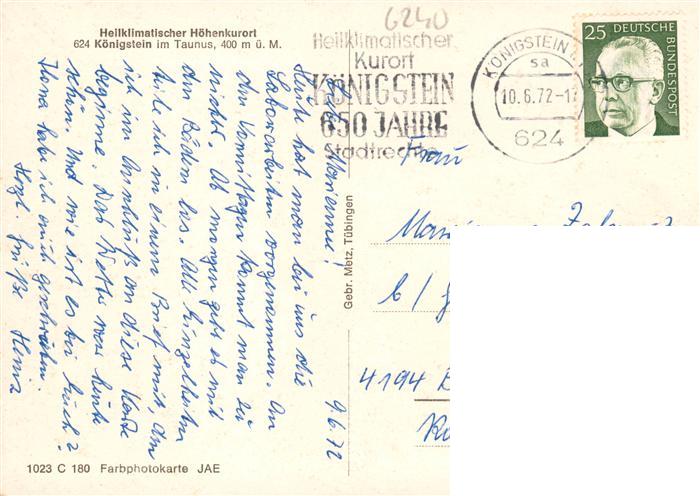 Heilklimatischer Höhenkurort
624 Königstein im Taunus, 400 m ü. M.
6240
Heilklimatischer
Kurort
KÖNIGSTEIN
650 JAHRE
Stadtrechte
KÖNIGSTEIN
sa
10.6.72-1
624
25 DEUTSCHE
BUNDESPOST
9.6.72
Heute hat man bei uns die
Laborarbeiten vorgenommen. An
den Vormittagen kommt man zu
nichts. Ab morgen geht es mit
den Bädern los. Alle Einzelheiten
teile ich in einem Brief mit, den
ich im Anschluß an diese Karte
beginne. Das Wetter war heute
schön. Und wie ist es bei Euch?
habe ich auch geschrieben.
Herzl. Grüße Heinz
Frau
4194
Gebr. Metz, Tübingen
1023 C 180 Farbphotokarte JAE